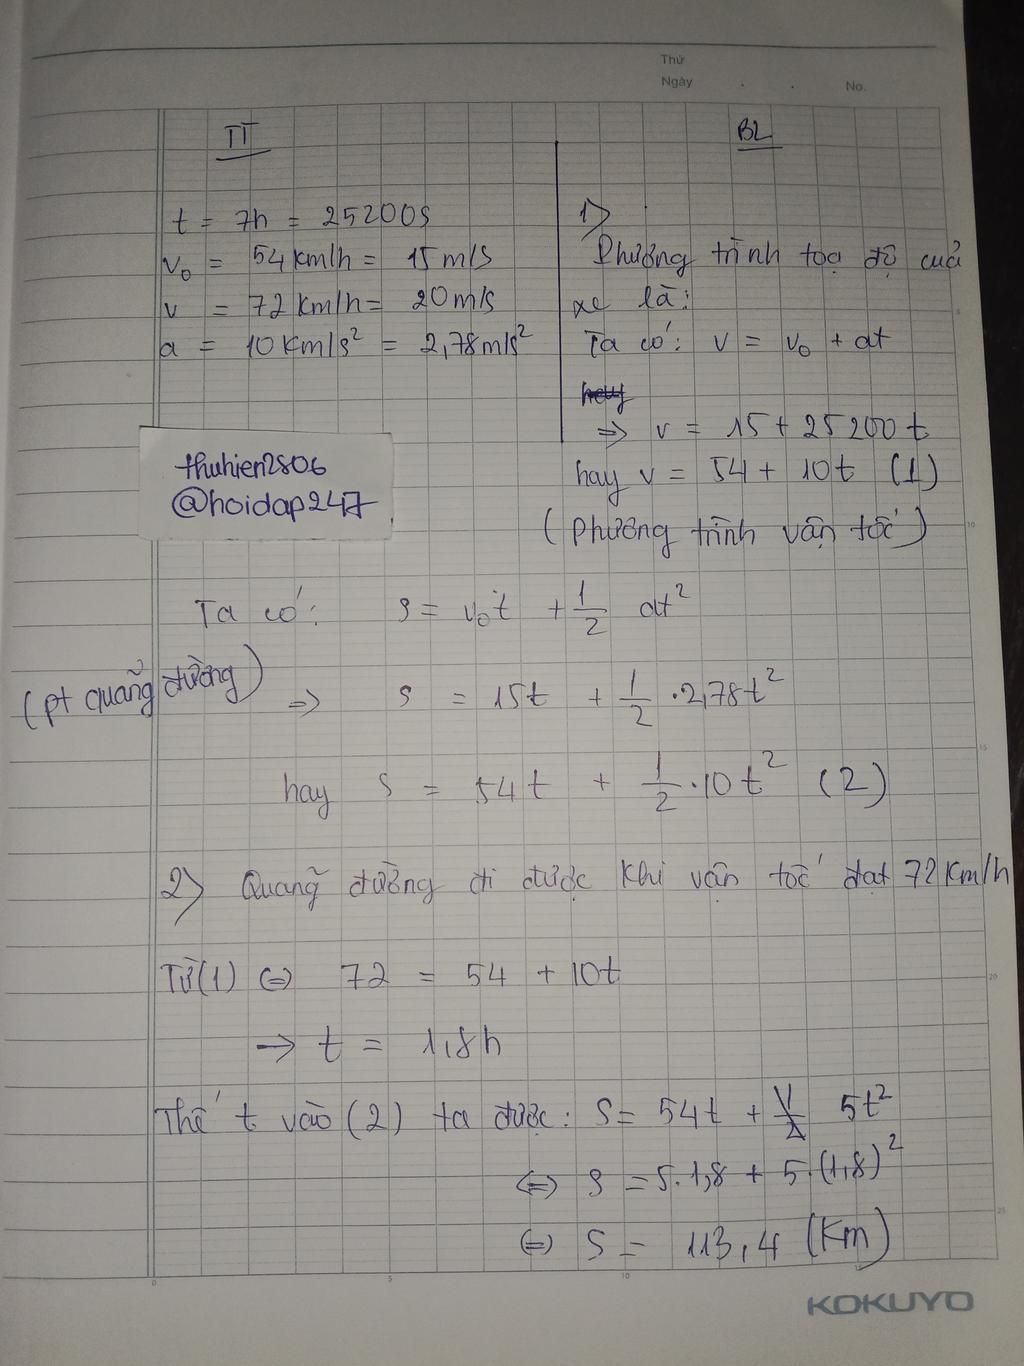 Thứ
Ngày . . No.
TT
t = 7h = 25200s
v₀ = 54 km/h = 15 m/s
v = 72 km/h = 20 m/s
a = 10 Km/s² = 2,78 m/s²
BL
1>
Phương trình toạ độ cuả
xe là:
Ta có: v = v₀ + at
hay
=> v = 15 + 25200 t
hay v = 54 + 10t (1)
(phương trình vận tốc)
thuhien2806
@hoidap247
Ta có: s = v₀t + 1/2 at²
(pt quãng đường) => s = 15t + 1/2 . 2,78t²
hay s = 54t + 1/2 . 10t² (2)
2> Quãng đường đi được khi vận tốc đạt 72 Km/h
Từ (1) <=> 72 = 54 + 10t
-> t = 1,8h
Thế t vào (2) ta được: S = 54t + 1/2 5t²
<=> s = 5.1,8 + 5.(1,8)²
<=> S = 113,4 (Km)
5
10
15
20
25
0 5 10 15
KOKUYO